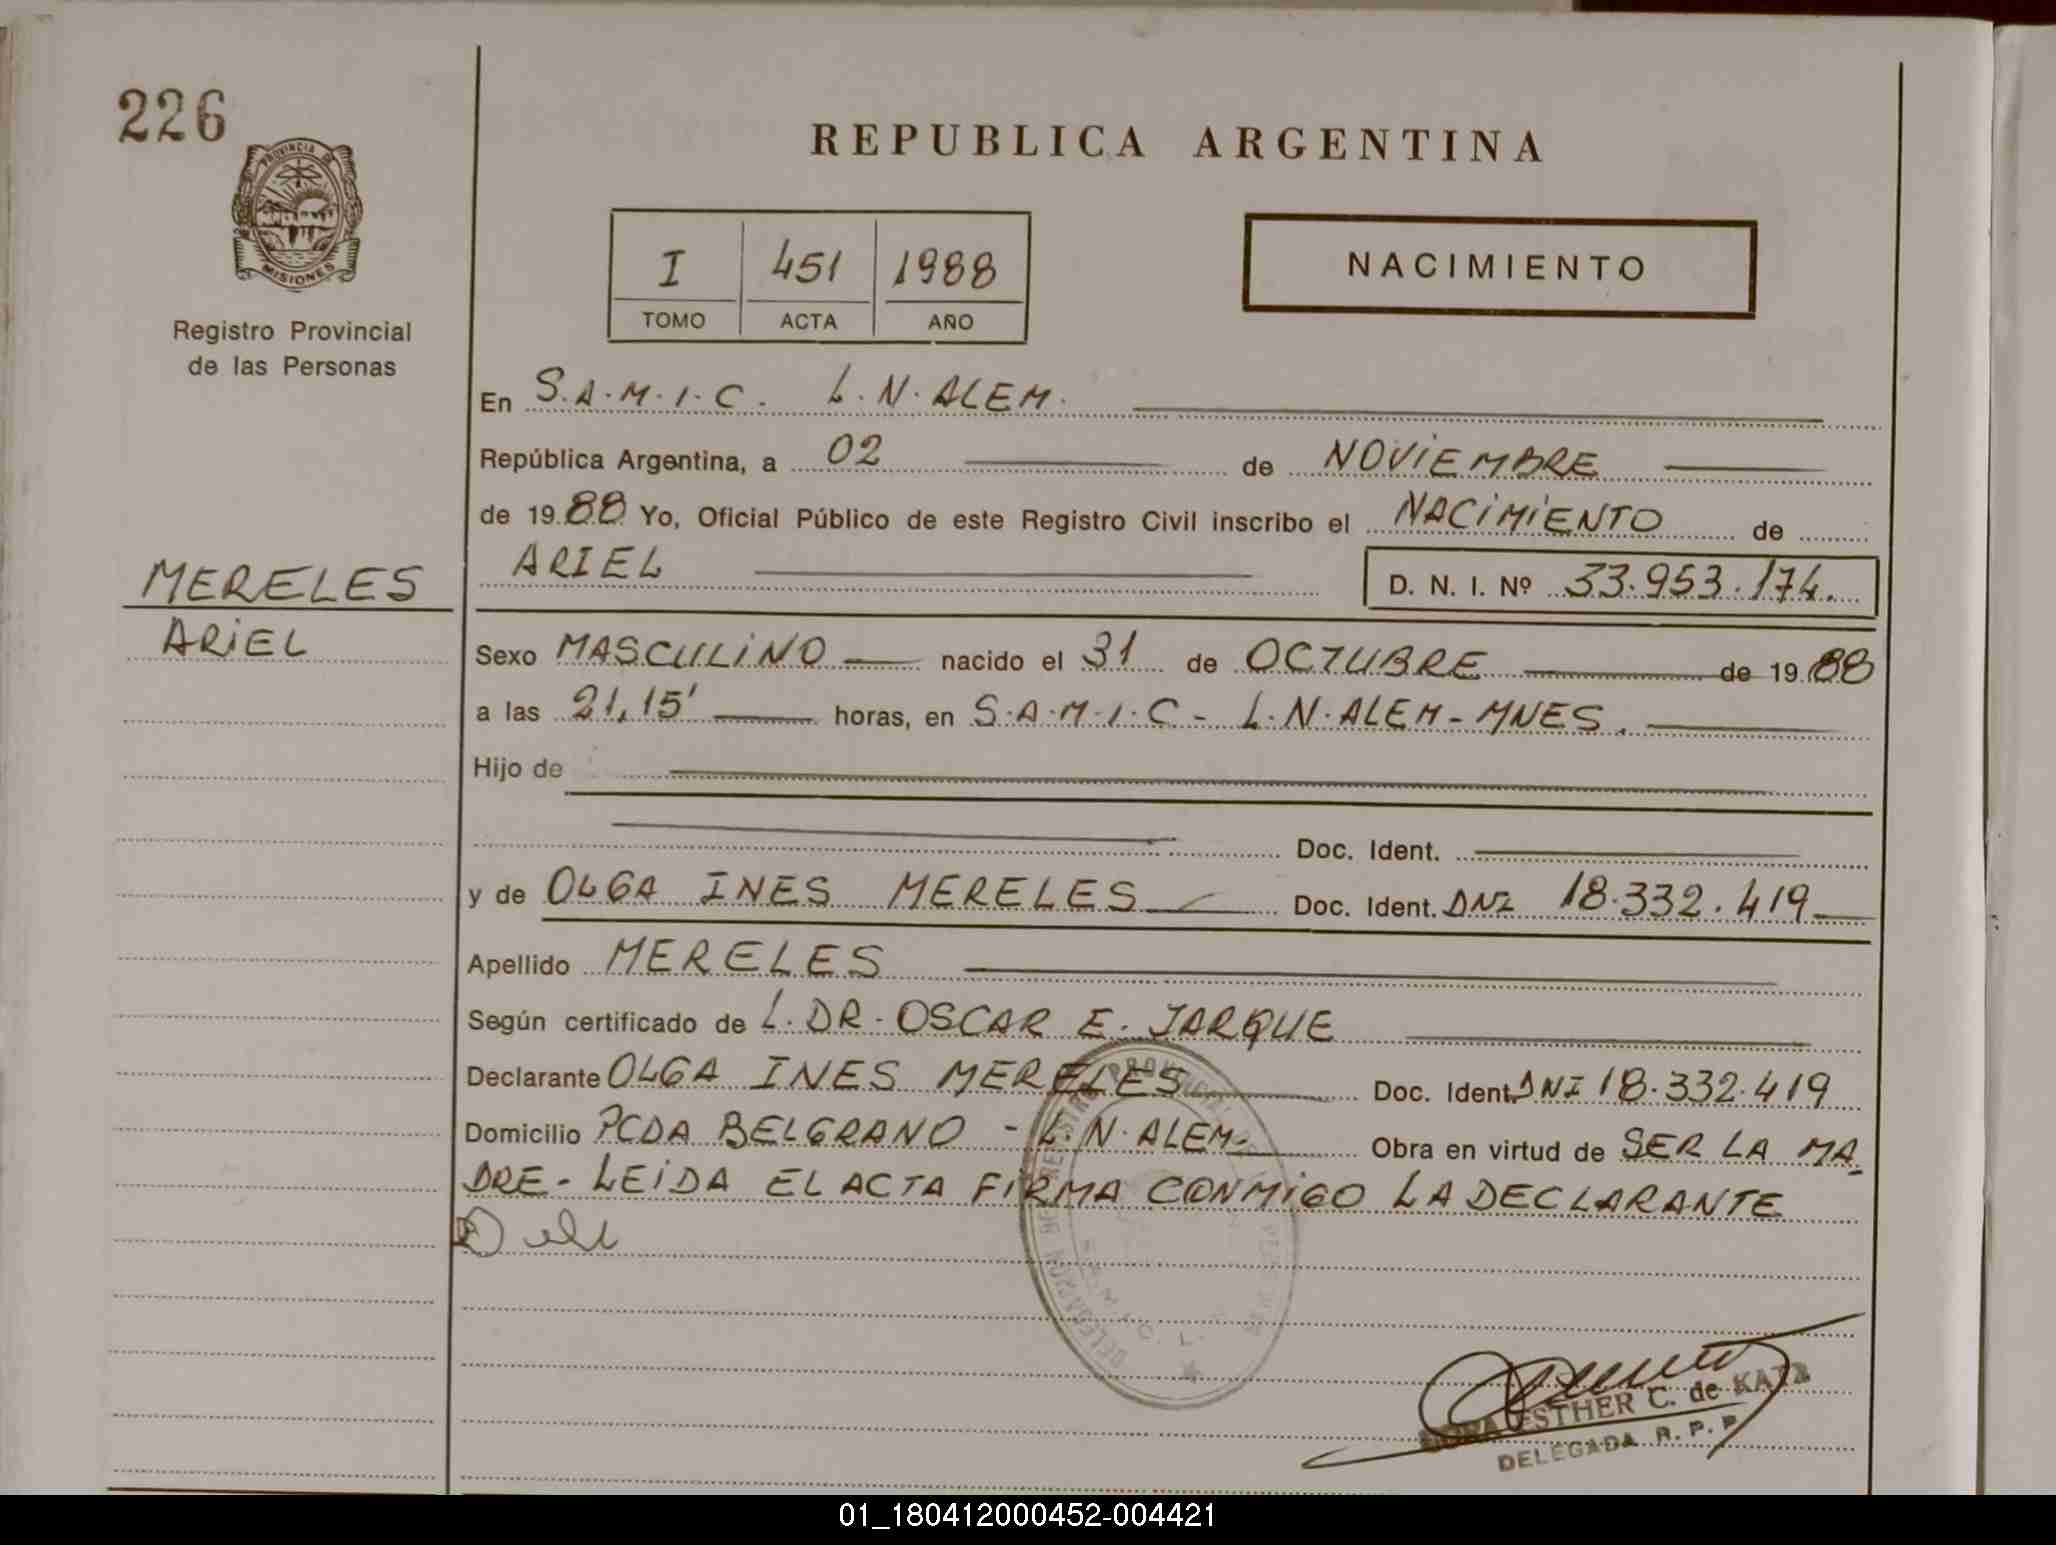 226
PROVINCIA DE
MISIONES
Registro Provincial
de las Personas
MERELES
ARIEL
REPUBLICA ARGENTINA
I 451 1988
TOMO ACTA AÑO
NACIMIENTO
En S.A.M.I.C. L.N.ALEM.
República Argentina, a 02 de NOVIEMBRE
de 1988 Yo, Oficial Público de este Registro Civil inscribo el NACIMIENTO de
ARIEL D. N. I. Nº 33.953.174.
Sexo MASCULINO nacido el 31 de OCTUBRE de 1988
a las 21,15' horas, en S.A.M.I.C - L.N.ALEM - MNES.
Hijo de
Doc. Ident.
y de OLGA INES MERELES Doc. Ident. DNI 18.332.419
Apellido MERELES
Según certificado de L. DR. OSCAR E. JARQUE
Declarante OLGA INES MERELES Doc. Ident. DNI 18.332.419
Domicilio PCDA BELGRANO - L.N.ALEM. Obra en virtud de SER LA MA
DRE. LEIDA EL ACTA FIRMA CONMIGO LA DECLARANTE
ESTHER C. de KATZ
DELEGADA R. P. P.
01_180412000452-004421